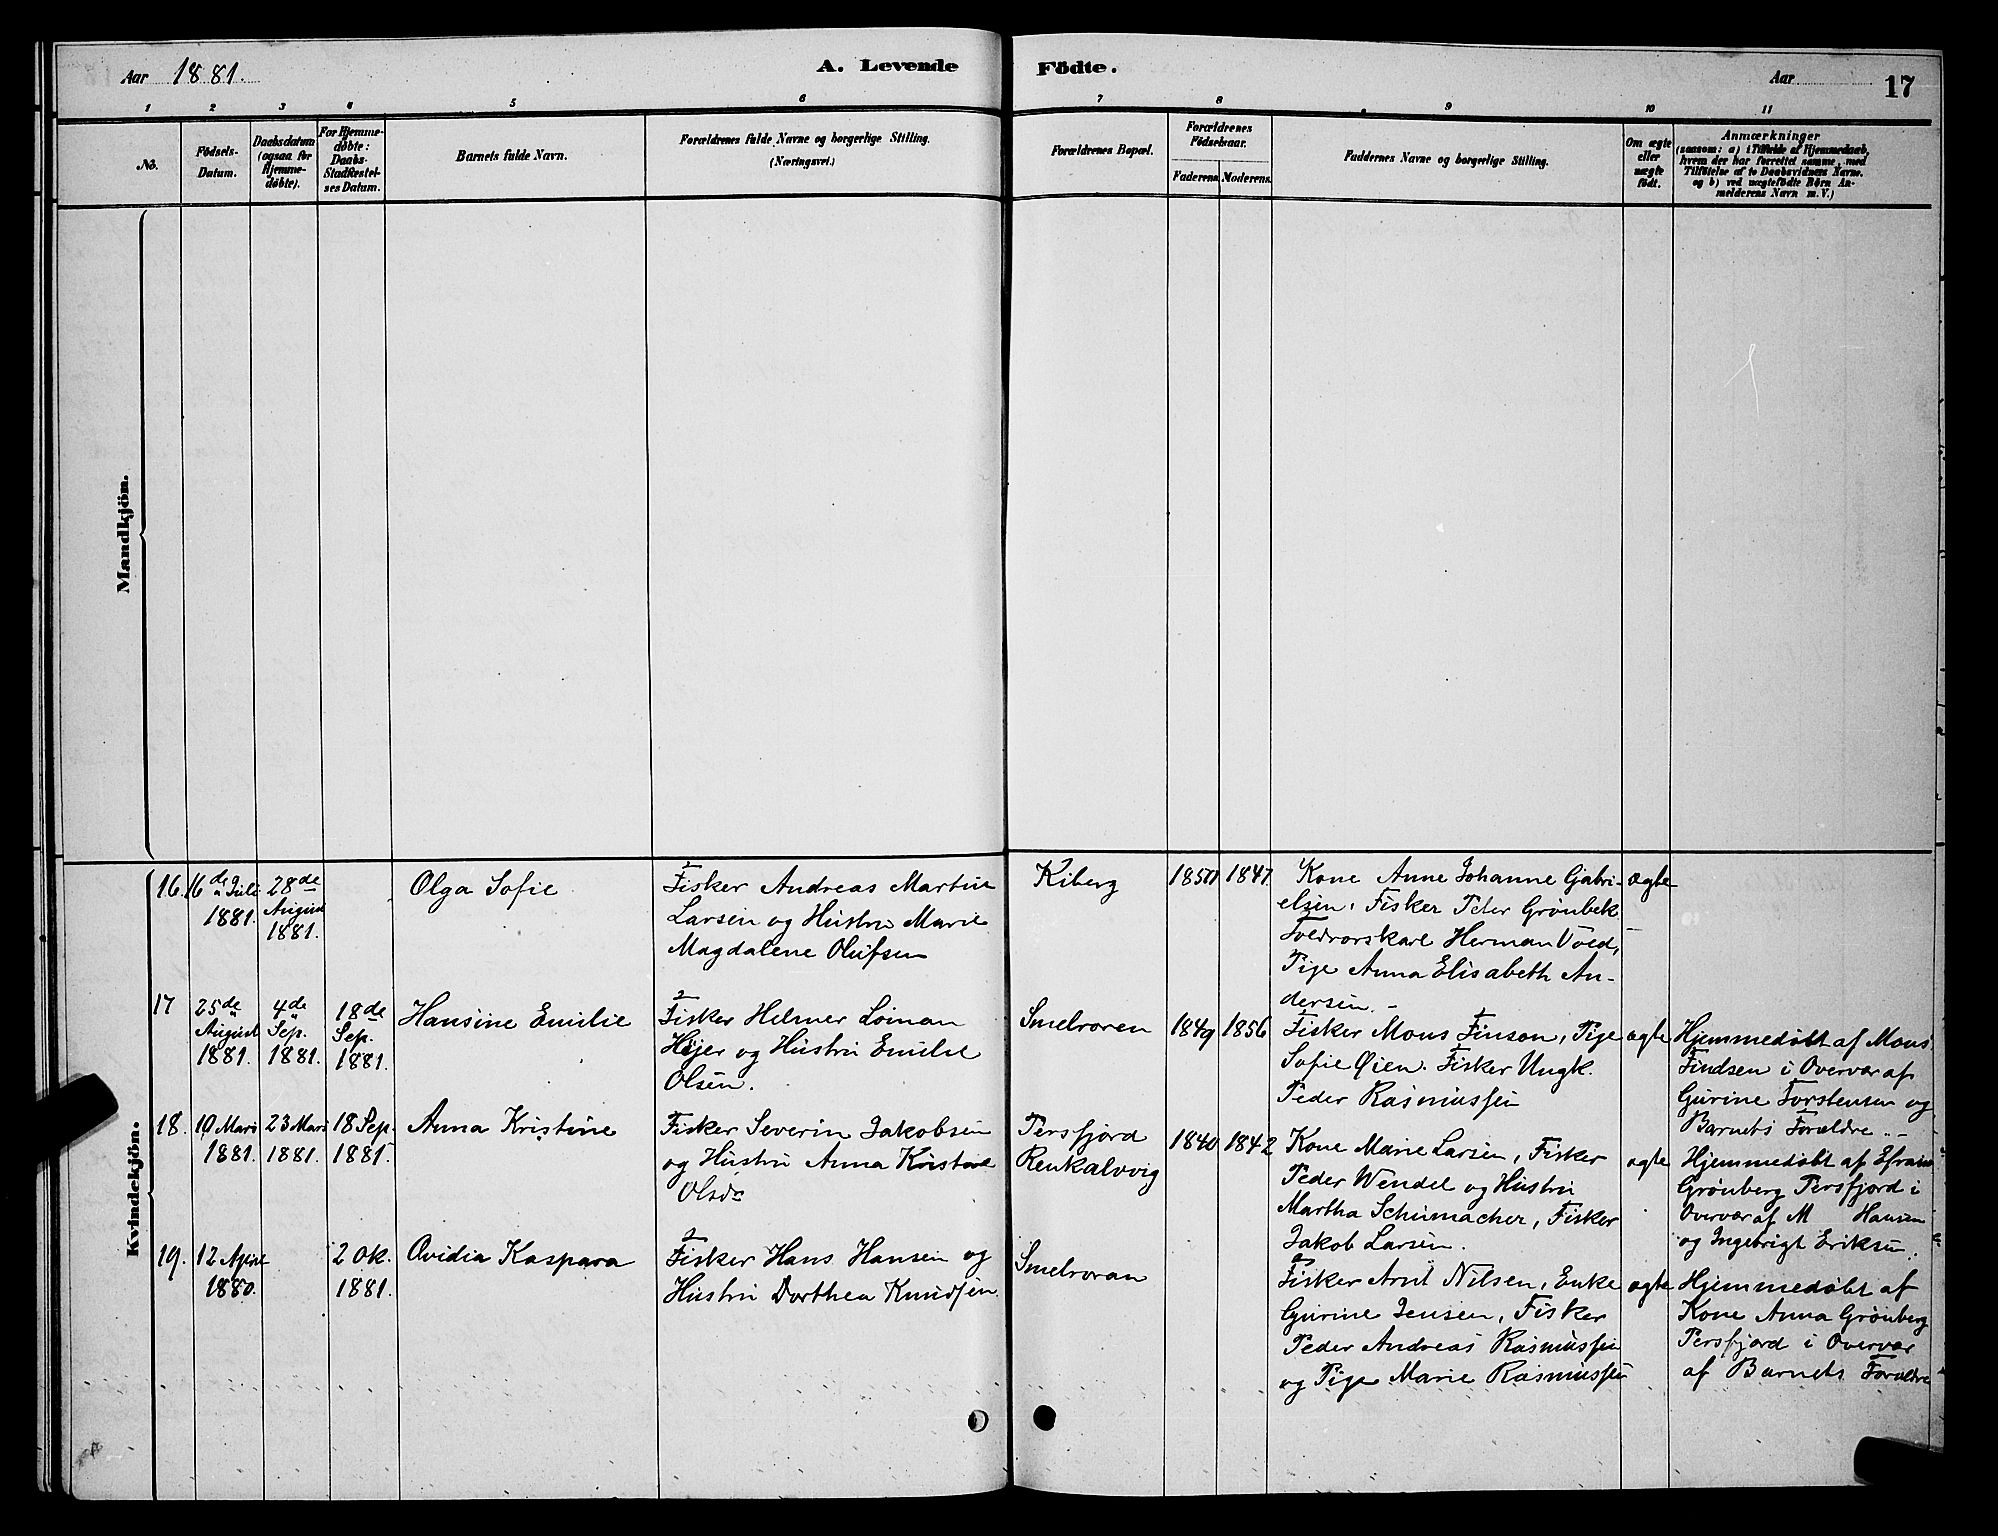 Aar 1881.
A. Levende
Födte.
Aar
17
1
2
3
5
6
7
8
9
10
11
No.
Födsels-
Datum.
Daabsdatum
(ogsaa for
Hjemme-
döbte).
For Hjemme-
döbte:
Daabs-
Stadfæstel-
ses Datum.
Barnets fulde Navn.
Forældrenes fulde Navne og borgerlige Stilling.
(Næringsvei.)
Forældrenes Bopæl.
Forældrenes
Födselsaar.
Faderens.
Moderens.
Faddernes Navne og borgerlige Stilling.
Om ægte
eller
uægte
födt.
Anmærkninger
(saasom: a) i Tilfælde af Hjemmedaab,
hvem der har forrettet samme, med
Tilföielse af to Daabsvidners Navne.
og b) ved uægtefödte Börn An-
melderens Navn m.V.)
Mandkjön.
Kvindekjön.
16.
16de Juli
1881.
28de
August
1881.
Olga Sofie
Fisker Andreas Martin
Larsen og Hustru Marie
Magdalene Olufsen
Kiberg
1847
Kone Anne Johanne Gabri-
elsen, Fisker Peter Grønbek
Herman
Pige Anna Elisabeth An-
dersen. -
ægte
17
25de
August
1881.
4de
Sep.
1881.
18de
Sep.
1881.
Hansine Emilie
Fisker Helmer
Højer og Hustru Emilie
Olsen.
Smelroren
1849
1856
Fisker Mons Finson, Pige
Sofie Øien. Fisker Ungk.
Peder Rasmussen
ægte
Hjemmedøbt af Mons
Findsen i Overvær af
Gurine Torstensen og
Barnets Forældre. -
18.
19 Mars
1881.
23 Mars
1881.
18 Sep.
1881.
Anna Kristine
Fisker Severin Jakobsen
og Hustru Anna Kristine
Olsdr
Persfjord
Renkalvvig
1840
1842
Kone Marie Larsen, Fisker
Peder Wendel og Hustru
Martha Schumacher, Fisker
Jakob Larsen.
ægte
Hjemmedøbt af Efraim
Grønberg Persfjord i
Overvær af M Hansen
og Ingebrigt Eriksen.
19.
12 April
1880.
2 Ok.
1881.
Ovidia Kaspara
Fisker Hans Hansen og
Hustru Dorthea Knudsen
Smelroran
Fisker Arnt Nilsen, Enke
Gurine Jensen, Fisker
Peder Andreas Rasmussen
og Pige Marie Rasmussen
ægte
Hjemmedøbt af
Kone Anna Grønberg
Persfjord i Overvær
af Barnets Forældre